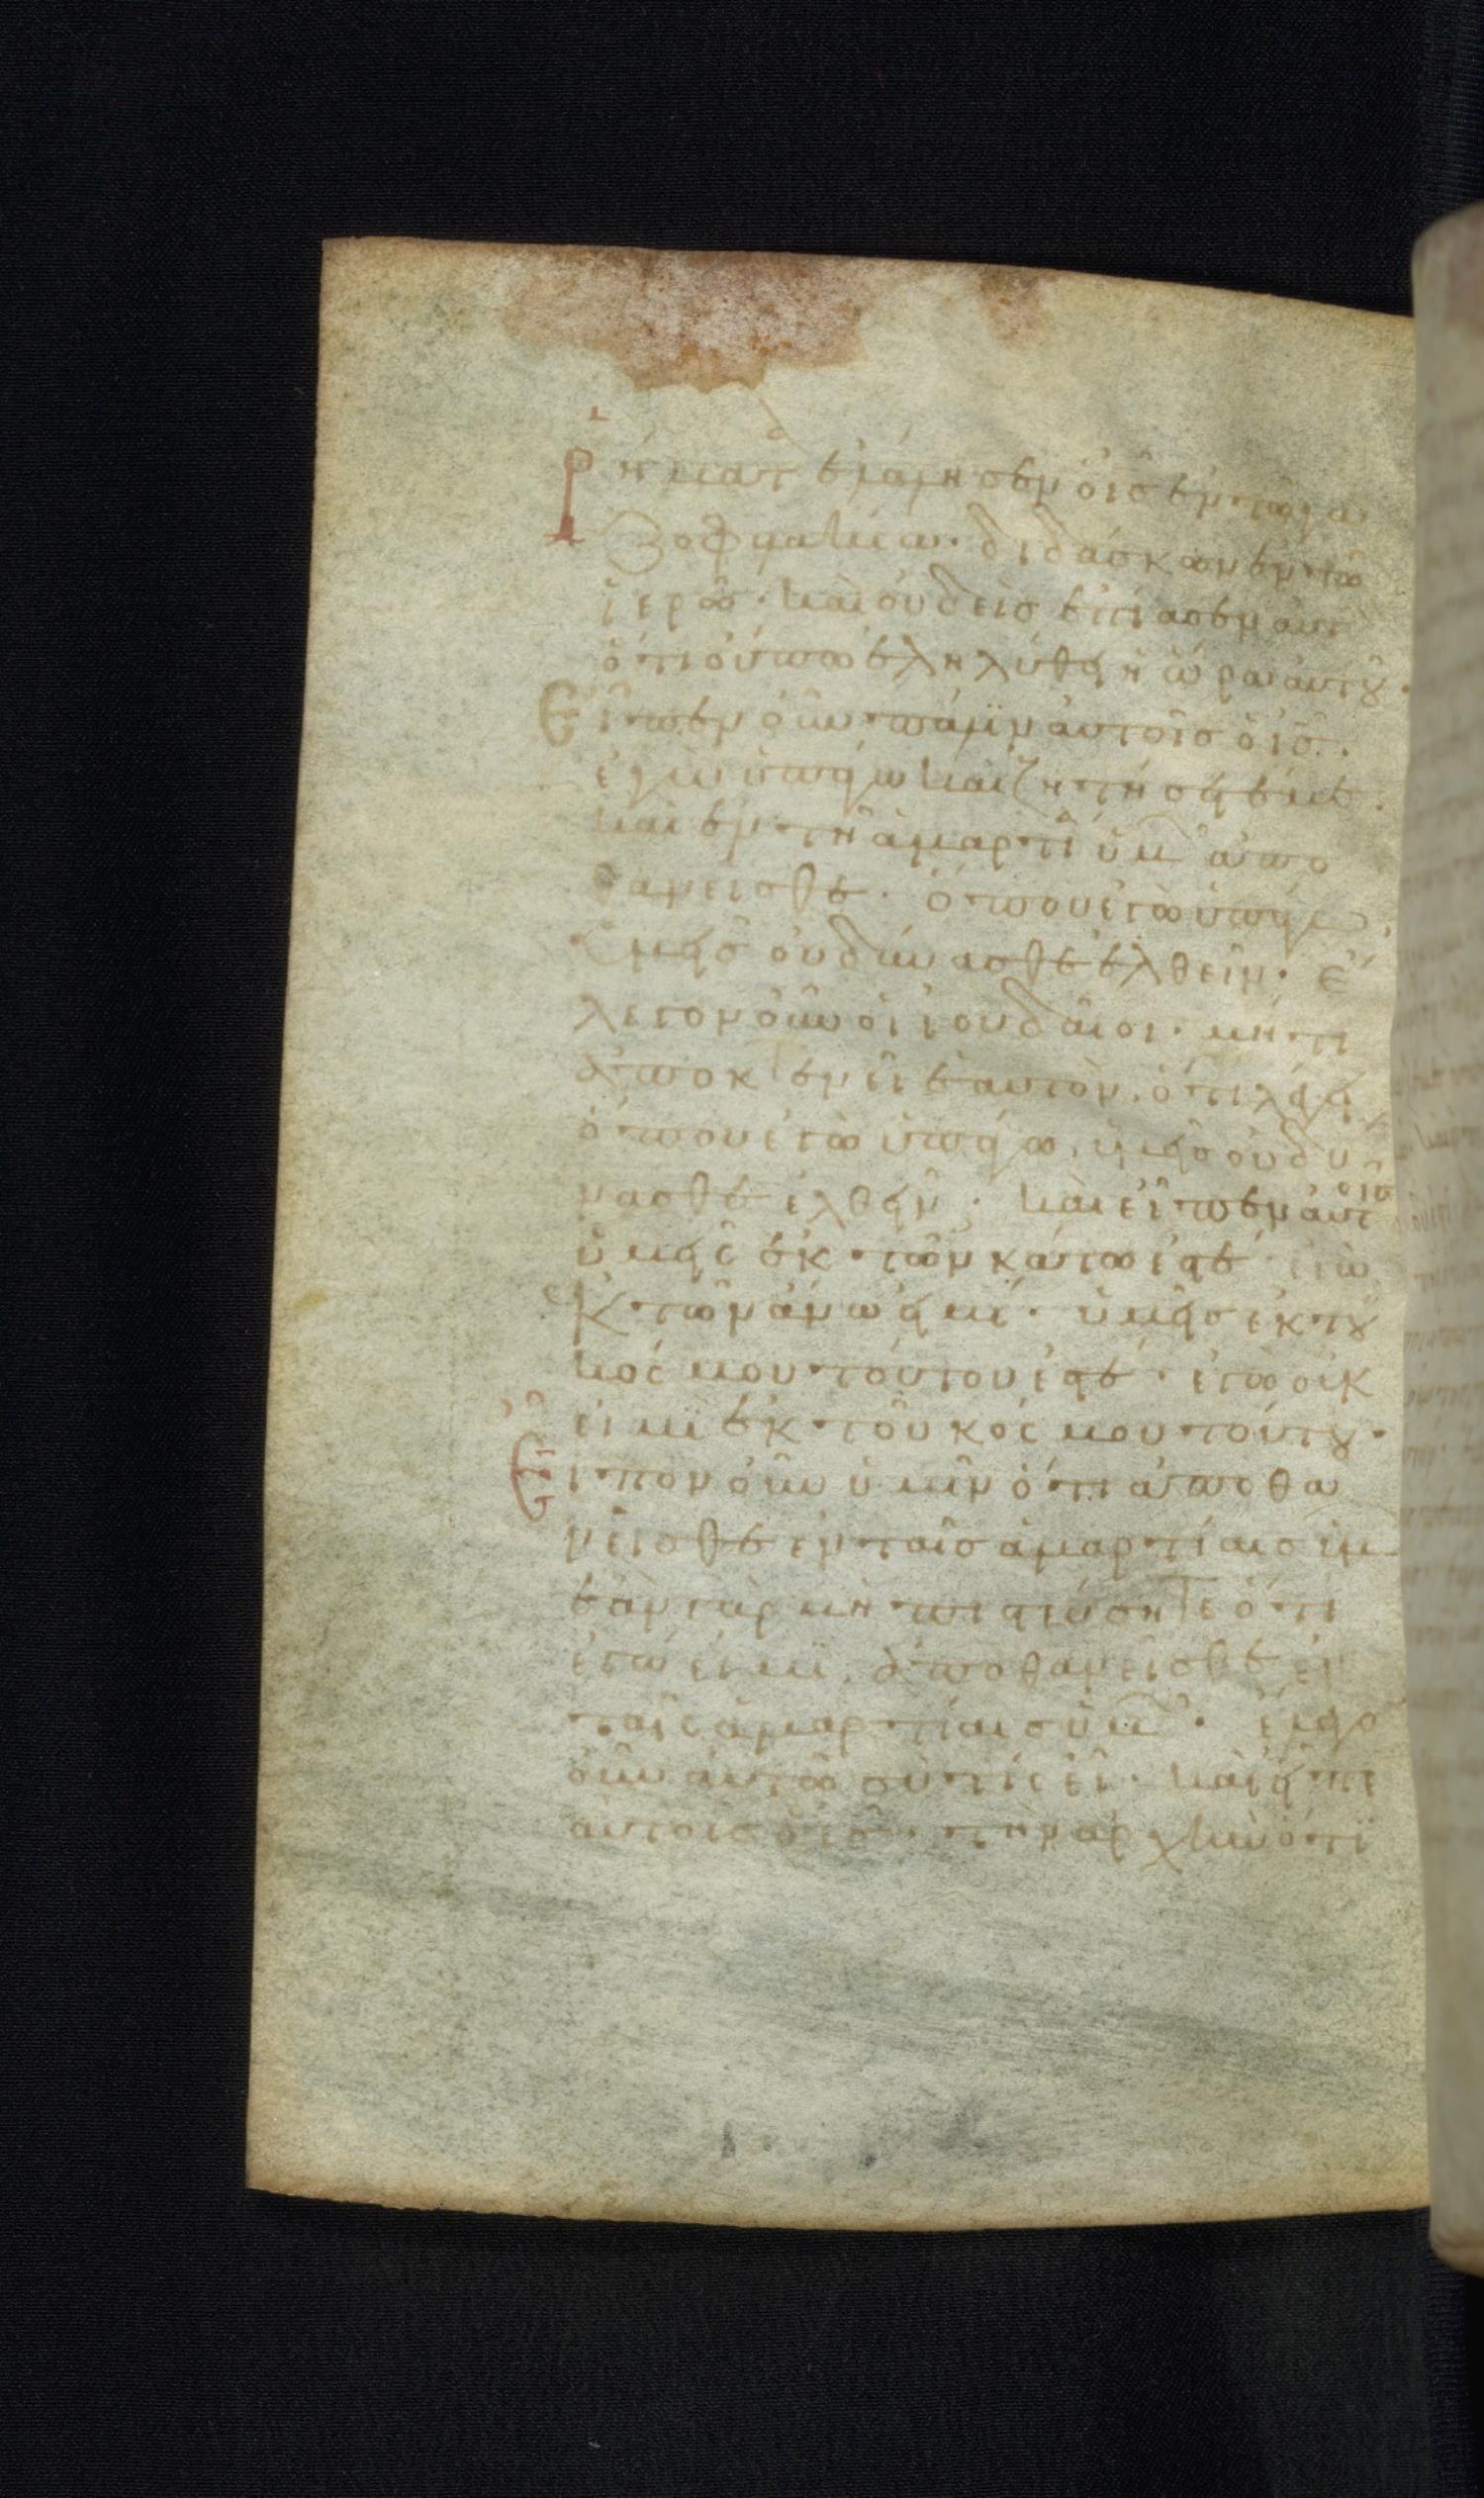 ῥήματ ἐλάλησεν ὁ ις ἐν τῶ γα
ζοφυλακίω· διδάσκων ἐν τῶ
ἱερῶ· καὶ οὐδεὶς ἐπίασεν αὐτ
ὅτι οὔπω ἐληλύθει ἡ ὥρα αὐτοῦ·
Εἶπεν οὖν πάλιν αὐτοῖς ὁ ις·
ἐγὼ ὑπάγω καὶ ζητήσετέ με·
καὶ ἐν τῆ ἁμαρτία ὑμ ἀπο
θανεῖσθε· ὅπου ἐγὼ ὑπάγω,
ὑμεῖς οὐ δύνασθε ἐλθεῖν· ἔ
λεγον οὖν οἱ ἰουδαῖοι· μήτι
ἀποκτενεῖ ἑαυτόν· ὅτι λέγει
ὅπου ἐγὼ ὑπάγω, ὑμεῖς οὐ δύ
νασθε ἐλθεῖν· καὶ εἶπεν αὐτοῖς
ὑμεῖς ἐκ τῶν κάτω ἐστέ· ἐγὼ
ἐκ τῶν ἄνω εἰμί· ὑμεῖς ἐκ τοῦ
κόσμου τούτου ἐστέ· ἐγὼ οὐκ
εἰμὶ ἐκ τοῦ κόσμου τούτου·
Εἶπον οὖν ὑμῖν ὅτι ἀποθα
νεῖσθε ἐν ταῖς ἁμαρτίαις ὑμ
ἐὰν γὰρ μὴ πιστεύσητε ὅτι
ἐγώ εἰμι, ἀποθανεῖσθε ἐν
ταῖς ἁμαρτίαις ὑμ· ἔλεγον
οὖν αὐτῶ σὺ τίς εἶ· καὶ εἶπε
αὐτοῖς ὁ ις· τὴν ἀρχὴν ὅτι